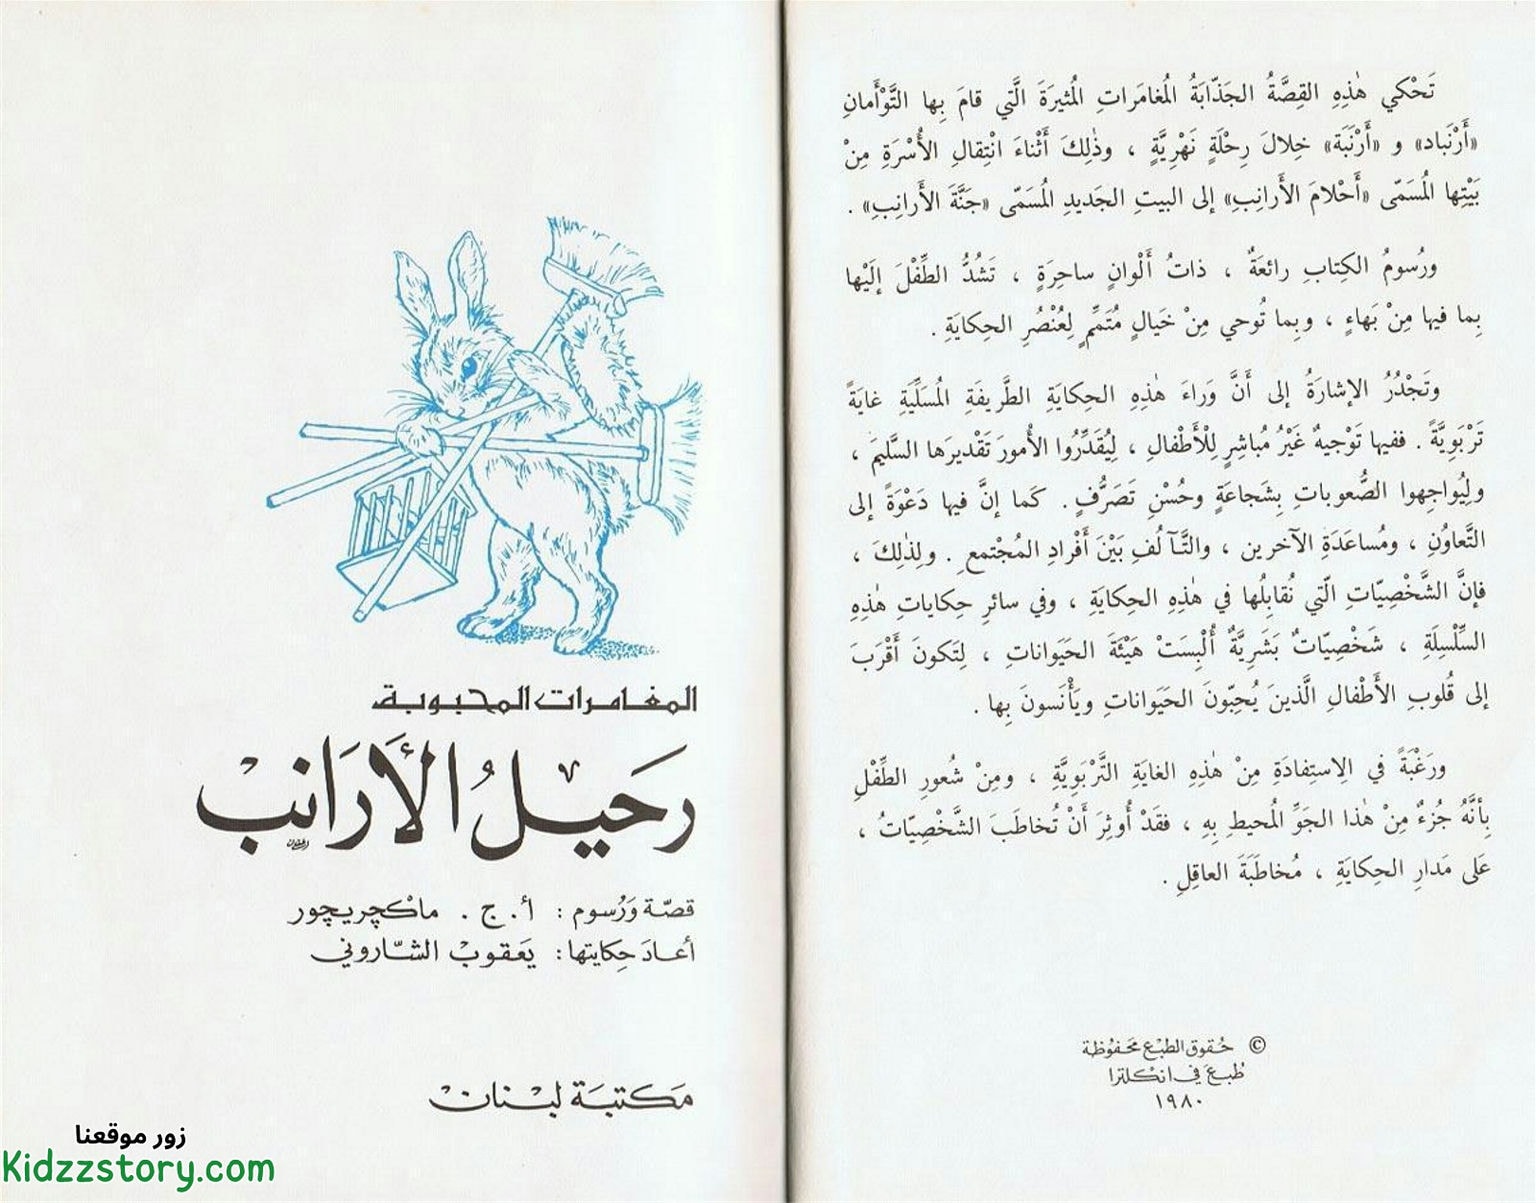 تَحْكي هٰذِهِ القِصَّةُ الجَذّابَةُ المُغامَراتِ المُثيرَةَ الَّتي قامَ بِها التَّوْأَمانِ
«أَرْنَباد» و «أَرْنَبَة» خِلالَ رِحْلَةٍ نَهْرِيَّةٍ ، وذٰلِكَ أَثْناءَ انْتِقالِ الأُسْرَةِ مِنْ
بَيْتِها المُسَمّى «أَحْلامَ الأَرانِبِ» إلى البيتِ الجَديدِ المُسَمّى «جَنَّةَ الأَرانِبِ» .
ورُسومُ الكِتابِ رائعَةٌ ، ذاتُ أَلْوانٍ ساحِرَةٍ ، تَشُدُّ الطِّفْلَ إلَيْها
بِما فيها مِنْ بَهاءٍ ، وبِما تُوحي مِنْ خَيالٍ مُتَمِّمٍ لِعُنْصُرِ الحِكايَةِ .
وتَجْدُرُ الإشارَةُ إلى أَنَّ وَراءَ هٰذِهِ الحِكايَةِ الطَّريفَةِ المُسَلِّيَةِ غايَةً
تَرْبَوِيَّةً . ففيها تَوْجيهٌ غَيْرُ مُباشِرٍ لِلْأَطْفالِ ، لِيُقَدِّرُوا الأُمورَ تَقْديرَها السَّليمَ ،
ولِيُواجِهوا الصُّعوباتِ بِشَجاعَةٍ وحُسْنِ تَصَرُّفٍ . كَما إنَّ فيها دَعْوَةً إلى
التَّعاوُنِ ، ومُساعَدَةِ الآخرين ، والتَّآلُفِ بَيْنَ أَفْرادِ المُجْتمعِ . ولِذٰلِكَ ،
فإنَّ الشَّخْصِيّاتِ الّتي نُقابِلُها في هٰذِهِ الحِكايَةِ ، وفي سائرِ حِكاياتِ هٰذِهِ
السِّلْسِلَةِ ، شَخْصِيّاتٌ بَشَرِيَّةٌ أُلْبِسَتْ هَيْئَةَ الحَيَواناتِ ، لِتَكونَ أَقْرَبَ
إلى قُلوبِ الأَطْفالِ الَّذينَ يُحِبّونَ الحَيَواناتِ ويَأْنَسونَ بِها .
ورَغْبَةً في الِاستِفادَةِ مِنْ هٰذِهِ الغايَةِ التَّرْبَوِيَّةِ ، ومِنْ شُعورِ الطِّفْلِ
بِأَنَّهُ جُزءٌ مِنْ هٰذا الجَوِّ المُحيطِ بِهِ ، فقَدْ أُوثِرَ أَنْ تُخاطَبَ الشَّخْصِيّاتُ ،
عَلى مَدارِ الحِكايَةِ ، مُخاطَبَةَ العاقِلِ .
© حُقوق الطبْع محَفوُظة
طُبعَ في انكلترا
١٩٨٠
المغامرات المحبوبة
رَحيلُ الأَرَانبْ
قصّة وَرُسوم : أ. ج . ماكْچريچور
أعادَ حِكايتها : يَعقوبْ الشّاروني
مَكتبَة لبْنانْ
زور موقعنا
Kidzzstory.com